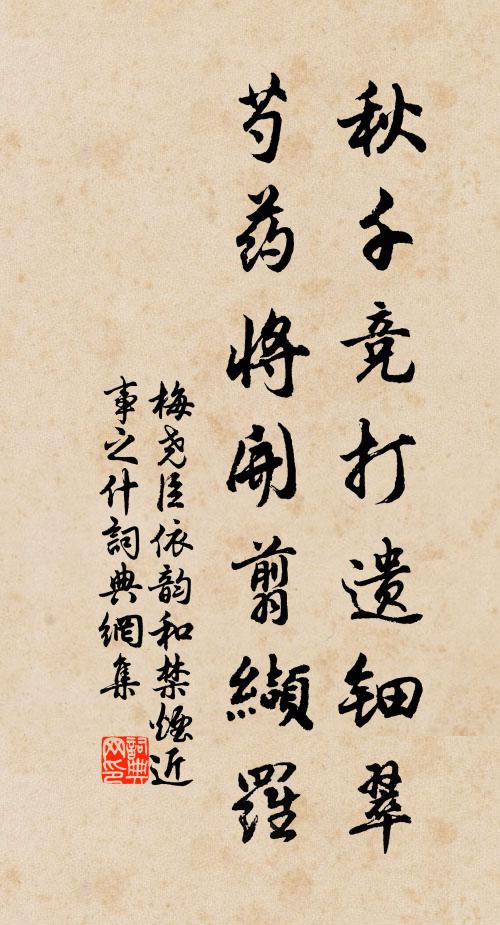 秋千竞打遗钿翠
芍药将開剪纈羅
梅尧臣依韵和禁煙近
事之什詞典網集
詞典网印